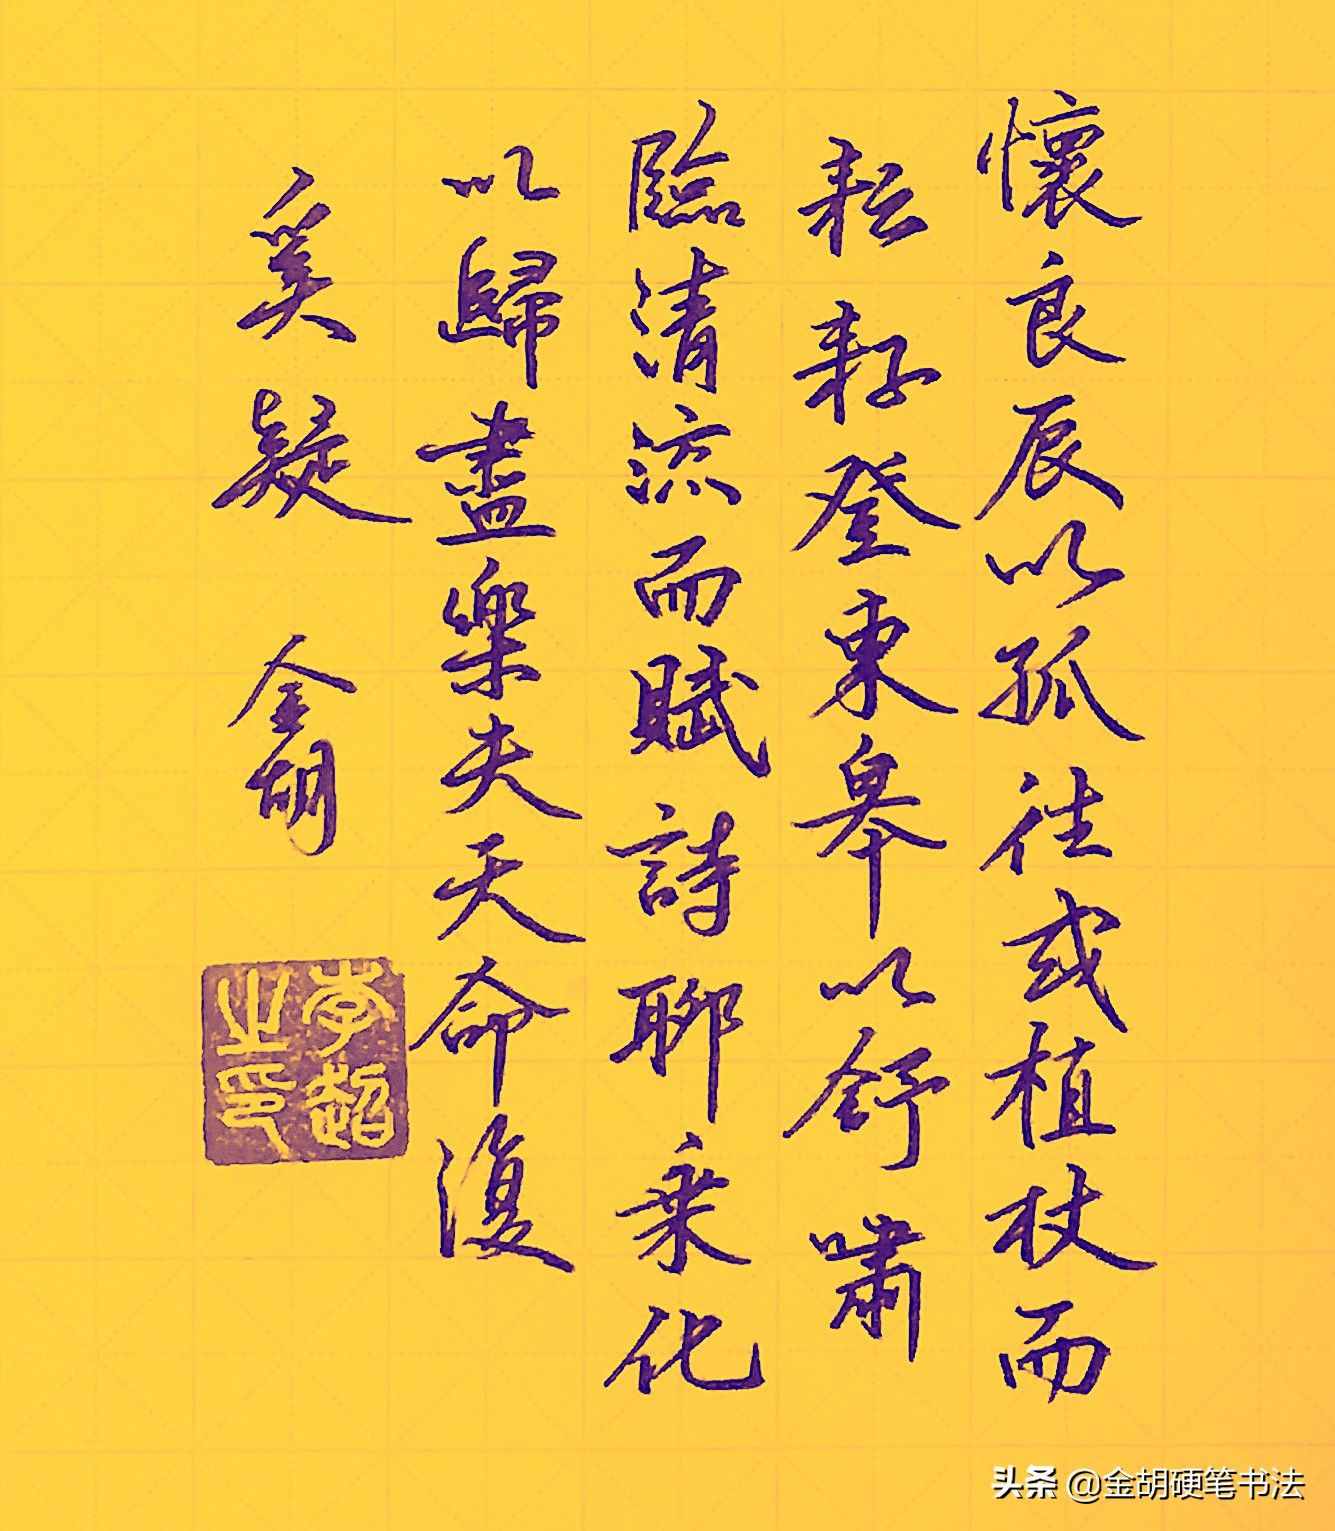 懷良辰以孤往或植杖而
耘耔登東皋以舒嘯
臨清流而賦詩聊乗化
以歸盡樂夫天命復
奚疑 金胡
李超之印
头条 @金胡硬笔书法